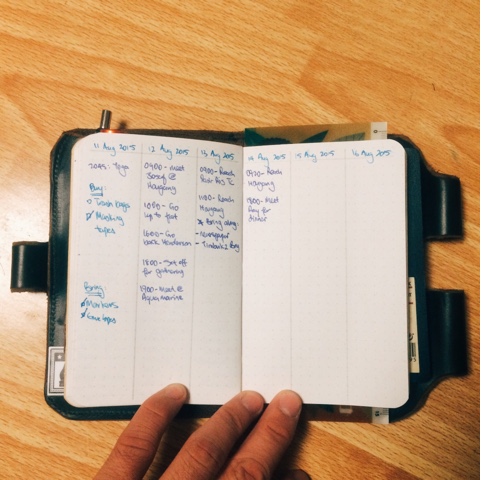 11 Aug 2015
2045: Yoga
Buy:
Trash bags
Masking
tapes
Bring:
Markers
tapes
12 Aug 2015
0900 - meet
@
Hougang
Go
up to flat
1600 - Go
back Henderson
1800 - Set off
for gathering
1900 - Meet @
Aquamarine
13 Aug 2015
0900 - Reach
1100 - Reach
Hougang
Bring along:
- Newspaper
- Timbuk2 Bag
14 Aug 2015
0930 - Reach
Hougang
1800 - Meet
for
dinner
15 Aug 2015
16 Aug 2015